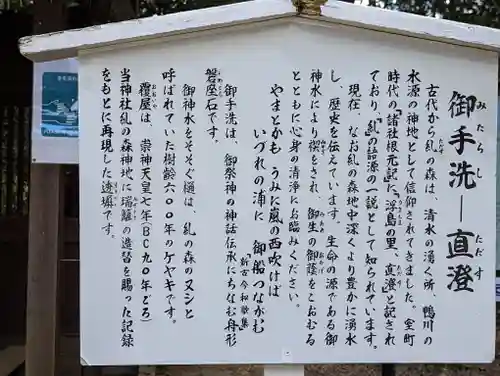 御手洗―直澄
みたらし
ただす
古代から糺の森は、清水の湧く所、鴨川の
水源の神地として信仰されてきました。室町
時代の「諸社根元記」に「浮島の里、直澄」と記され
ており、「糺」の語源の一説として知られています。
現在、なお糺の森地中深くより豊かに湧水
し、歴史を伝えています。生命の源である御
神水により禊をされ、御生の御蔭をこおむる
とともに心身の清浄にお臨みください。
やまとかも うみに嵐の西吹けば
いづれの浦に 御船つながむ
「新古今和歌集」
御手洗は、御祭神の神話伝承にちなむ舟形
磐座石です。
いわくら
御神水をそそぐ樋は、糺の森のヌシと
呼ばれていた樹齢六００年のケヤキです。
覆屋は、崇神天皇七年(BC九０年ごろ)
当神社糺の森神地に瑞籬の造替を賜った記録
みずがき
をもとに再現した遺構です。